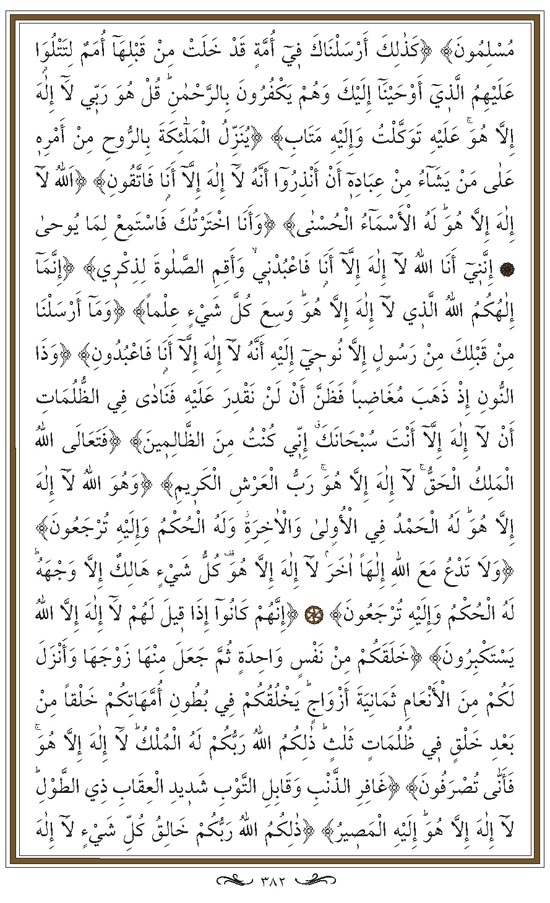 مُسْلِمُونَ﴾ ﴿كَذٰلِكَ أَرْسَلْنَاكَ ف۪ٓي أُمَّةٍ قَدْ خَلَتْ مِنْ قَبْلِهَٓا أُمَمٌ لِتَتْلُوَا
عَلَيْهِمُ الَّذ۪ٓي أَوْحَيْنَٓا إِلَيْكَ وَهُمْ يَكْفُرُونَ بِالرَّحْمٰنِۜ قُلْ هُوَ رَبّ۪ي لَٓا إِلٰهَ
إِلَّا هُوَۚ عَلَيْهِ تَوَكَّلْتُ وَإِلَيْهِ مَتَابِ﴾ ﴿يُنَزِّلُ الْمَلٰٓئِكَةَ بِالرُّوحِ مِنْ أَمْرِه۪
عَلٰى مَنْ يَشَٓاءُ مِنْ عِبَادِه۪ٓ أَنْ أَنْذِرُٓوا أَنَّهُ لَٓا إِلٰهَ إِلَّٓا أَنَا۬ فَاتَّقُونِ﴾ ﴿اَللهُ لَٓا
إِلٰهَ إِلَّا هُوَۜ لَهُ الْأَسْمَٓاءُ الْحُسْنٰى﴾ ﴿وَأَنَا اخْتَرْتُكَ فَاسْتَمِعْ لِمَا يُوحٰى
إِنَّن۪ٓي أَنَا اللهُ لَٓا إِلٰهَ إِلَّٓا أَنَا۬ فَاعْبُدْن۪يۙ وَأَقِمِ الصَّلٰوةَ لِذِكْر۪ي﴾ ﴿إِنَّمَٓا
إِلٰهُكُمُ اللهُ الَّذ۪ي لَٓا إِلٰهَ إِلَّا هُوَۜ وَسِعَ كُلَّ شَيْءٍ عِلْماً﴾ ﴿وَمَٓا أَرْسَلْنَا
مِنْ قَبْلِكَ مِنْ رَسُولٍ إِلَّا نُوح۪ٓي إِلَيْهِ أَنَّهُ لَٓا إِلٰهَ إِلَّٓا أَنَا۬ فَاعْبُدُونِ﴾ ﴿وَذَا
النُّونِ إِذْ ذَهَبَ مُغَاضِباً فَظَنَّ أَنْ لَنْ نَقْدِرَ عَلَيْهِ فَنَادٰى فِي الظُّلُمَاتِ
أَنْ لَٓا إِلٰهَ إِلَّٓا أَنْتَ سُبْحَانَكَۗ إِنّ۪ي كُنْتُ مِنَ الظَّالِم۪ينَ﴾ ﴿فَتَعَالَى اللهُ
الْمَلِكُ الْحَقُّۚ لَٓا إِلٰهَ إِلَّا هُوَۚ رَبُّ الْعَرْشِ الْكَر۪يمِ﴾ ﴿وَهُوَ اللهُ لَٓا إِلٰهَ
إِلَّا هُوَۜ لَهُ الْحَمْدُ فِي الْأُولٰى وَالْاٰخِرَةِۘ وَلَهُ الْحُكْمُ وَإِلَيْهِ تُرْجَعُونَ﴾
﴿وَلَا تَدْعُ مَعَ اللهِ إِلٰهاً اٰخَرَۢ لَٓا إِلٰهَ إِلَّا هُوَ۠ كُلُّ شَيْءٍ هَالِكٌ إِلَّا وَجْهَهُۜ
لَهُ الْحُكْمُ وَإِلَيْهِ تُرْجَعُونَ﴾ ﴿إِنَّهُمْ كَانُٓوا إِذَا ق۪يلَ لَهُمْ لَٓا إِلٰهَ إِلَّا اللهُ
يَسْتَكْبِرُونَ﴾ ﴿خَلَقَكُمْ مِنْ نَفْسٍ وَاحِدَةٍ ثُمَّ جَعَلَ مِنْهَا زَوْجَهَا وَأَنْزَلَ
لَكُمْ مِنَ الْأَنْعَامِ ثَمَانِيَةَ أَزْوَاجٍۜ يَخْلُقُكُمْ ف۪ي بُطُونِ أُمَّهَاتِكُمْ خَلْقاً مِنْ
بَعْدِ خَلْقٍ ف۪ي ظُلُمَاتٍ ثَلٰثٍۜ ذٰلِكُمُ اللهُ رَبُّكُمْ لَهُ الْمُلْكُۜ لَٓا إِلٰهَ إِلَّا هُوَۚ
فَأَنّٰى تُصْرَفُونَ﴾ ﴿غَافِرِ الذَّنْبِ وَقَابِلِ التَّوْبِ شَد۪يدِ الْعِقَابِ ذِي الطَّوْلِۜ
لَٓا إِلٰهَ إِلَّا هُوَۜ إِلَيْهِ الْمَص۪يرُ﴾ ﴿ذٰلِكُمُ اللهُ رَبُّكُمْ خَالِقُ كُلِّ شَيْءٍۢ لَٓا إِلٰهَ
٣٨٢